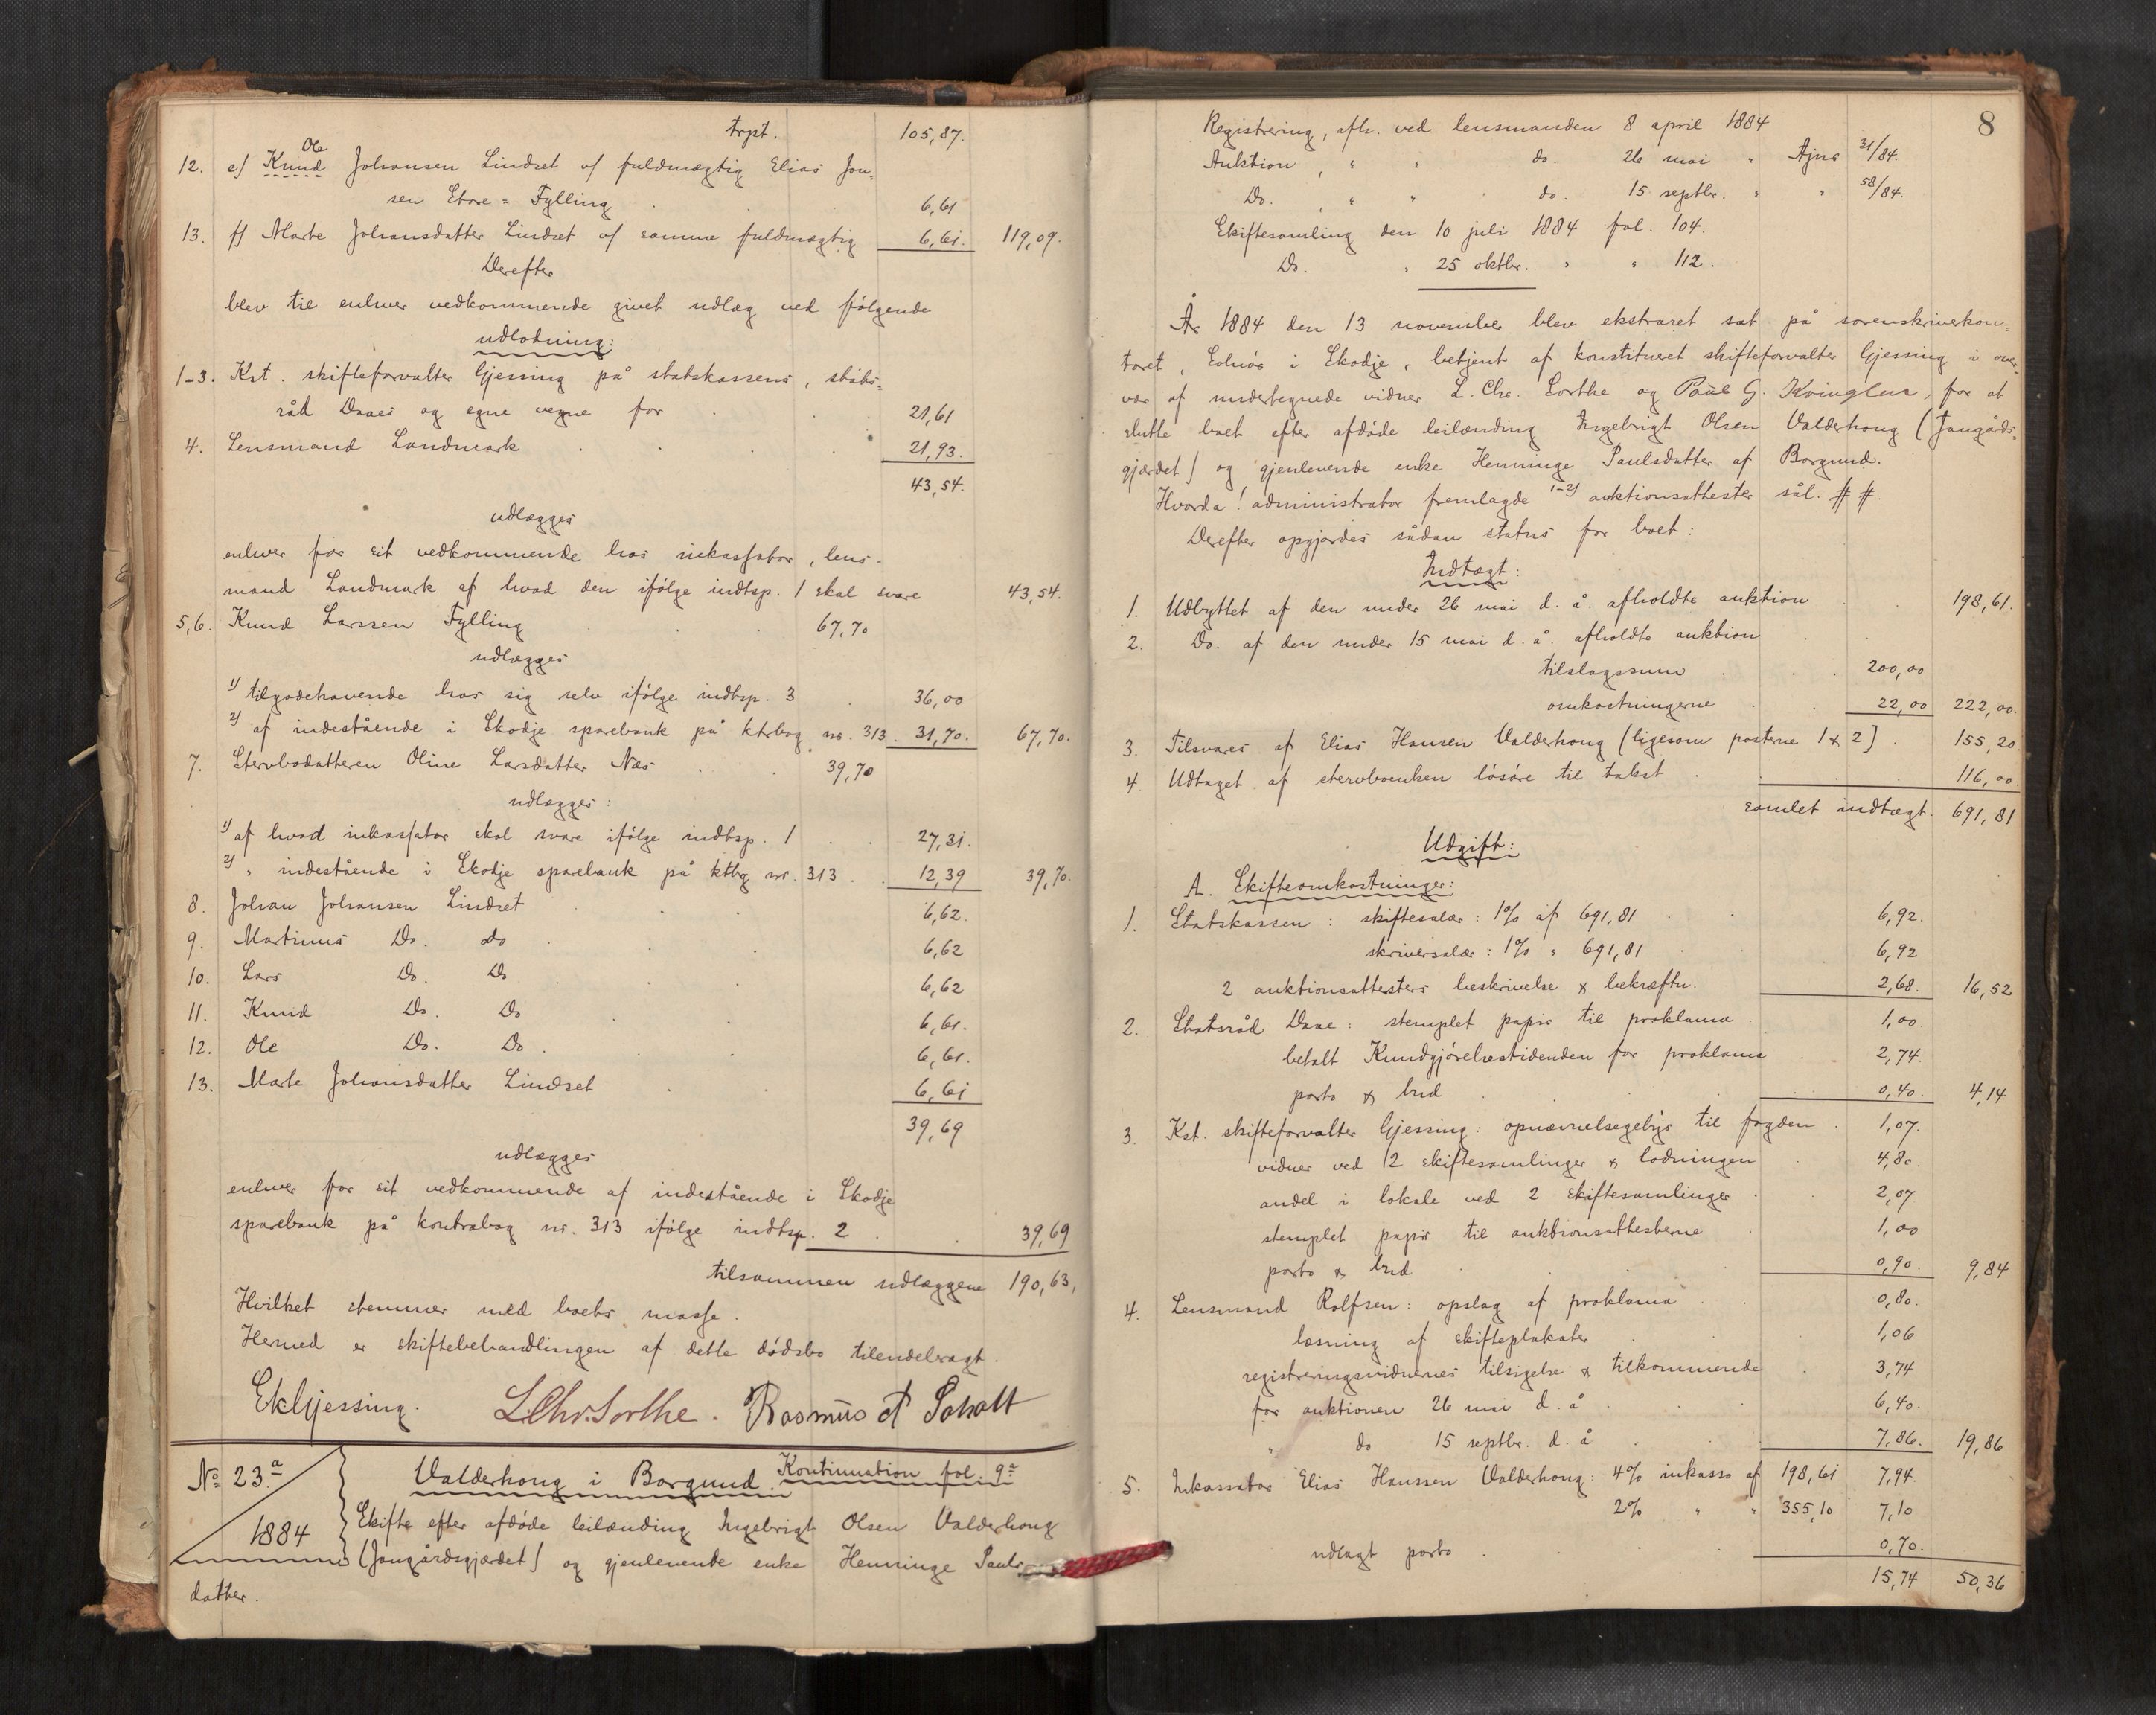 trpt. 105,87.
12. e) Knud Ole Johansen Lindset v/ fuldmægtig Elias Jon-
sen Store-Fylling 6,61
13. f) Marte Johansdatter Lindset v/ samme fuldmægtig 6,61. 119,09.
Derefter
blev til enhver vedkommende givet udlæg ved følgende
udlodning:
1-3. Kst. skifteforvalter Gjessing på statskassens, stats-
råd Daaes og egne vegne for 21,61
4. Lensmand Landmark 21,93.
43,54.
udlægges
enhver for sit vedkommende hos inkassator, lens-
mand Landmark af hvad den ifølge indtsp. 1 skal svare 43,54.
5,6. Knud Larssen Fylling 67,70
udlægges
1) tilgodehavende hos sig selv ifølge indtsp. 3 36,00
2) af indestående i Skodje sparebank på ktrbog nr. 313. 31,70. 67,70.
7. Stervbodatteren Oline Larsdatter Næs 39,70
udlægges:
1) af hvad inkassator skal svare ifølge indtsp. 1 27,31.
2) " indestående i Skodje sparebank på ktbg nr. 313. 12,39 39,70.
8. Johan Johansen Lindset 6,62.
9. Martinus Do. Do 6,62
10. Lars Do. Do 6,62
11. Knud Do. Do 6,61.
12. Ole Do. Do. 6,61.
13. Marte Johansdatter Lindset 6,61
39,69
udlægges
enhver for sit vedkommende af indestående i Skodje
sparebank på kontrabog nr. 313 ifølge indtsp. 2 39,69
tilsammen udlæggene 190,63,
Hvilket stemmer med boets masse.
Hermed er skiftebehandlingen af dette dødsbo tilendebragt.
EkGjessing. L.Chr.Sorthe. Rasmus Solholt
No 23.a Valderhoug i Borgund. Kontinuation fol. 9a
1884 Skifte efter afdøde leilænding Ingebrigt Olsen Valderhoug
(Jangårdsgjærdet) og gjenlevende enke Henninge Pauls-
datter.
8
Registrering, afh. ved lensmanden 8 april 1884
Auktion, " " do. 26 mai " Ajnr 31/84.
Do. , " " do. 15 septbr. " " 58/84.
Skiftesamling den 10 juli 1884 fol. 104.
Do. " 25 oktbr. " " 112.
År 1884 den 13 november blev ekstraret sat på sorenskriverkon-
toret, Solnør i Skodje, betjent af konstitueret skifteforvalter Gjessing i over-
vær af undertegnede vidner L. Chr. Sorthe og Paul G. Kvinglen, for at
slutte boet efter afdøde leilænding Ingebrigt Olsen Valderhoug (Jangårds-
gjærdet) og gjenlevende enke Henninge Paulsdatter af Borgund.
Hvorda! administrator fremlagde 1-2) auktionsattester sål. # #.
Derefter opgjordes sådan status for boet:
Indtægt:
1. Udbyttet af den under 26 mai d. å. afholdte auktion 198,61.
2. Do. af den under 15 mai d. å. afholdte auktion
tilslagssum 200,00
omkostningerne 22,00 222,00.
3. Tilsvares af Elias Hansen Valderhoug (ligesom posterne 1 & 2) 155,20
4. Udtaget af stervboenken løsøre til takst 116,00.
samlet indtægt. 691,81
Udgift:
A. Skifteomkostninger:
1. Statskassen: skiftesalær: 1% af 691,81 6,92.
skriversalær: 1% " 691,81 6,92
2 auktionsattesters beskrivelse & bekræftn. 2,68. 16,52
2. Statsråd Daae: stemplet papir til proklama 1,00.
betalt Kundgjørelsestidenden for proklama 2,74.
porto & bud 0,40. 4,14
3. Kst. skifteforvalter Gjessing: opnævnelsegebyr til fogden 1,07.
vidner ved 2 skiftesamlinger & lodningen 4,80.
andel i lokale ved 2 skiftesamlinger 2,07
stemplet papir til auktionsattesterne 1,00
porto & bud 0,90. 9,84
4. Lensmand Rolfsen: opslag af proklama 0,80.
læsning af skifteplakater 1,06
registreringsvidnernes tilsigelse & tilkommende 3,74
for auktionen 26 mai d. å 6,40.
" do 15 septbr. d. å 7,86. 19,86
5. Inkassator Elias Hanssen Valderhoug: 4% inkasso af 198,61 7,94.
2% " " 355,10 7,10
udlagt porto 0,70.
15,74 50,36